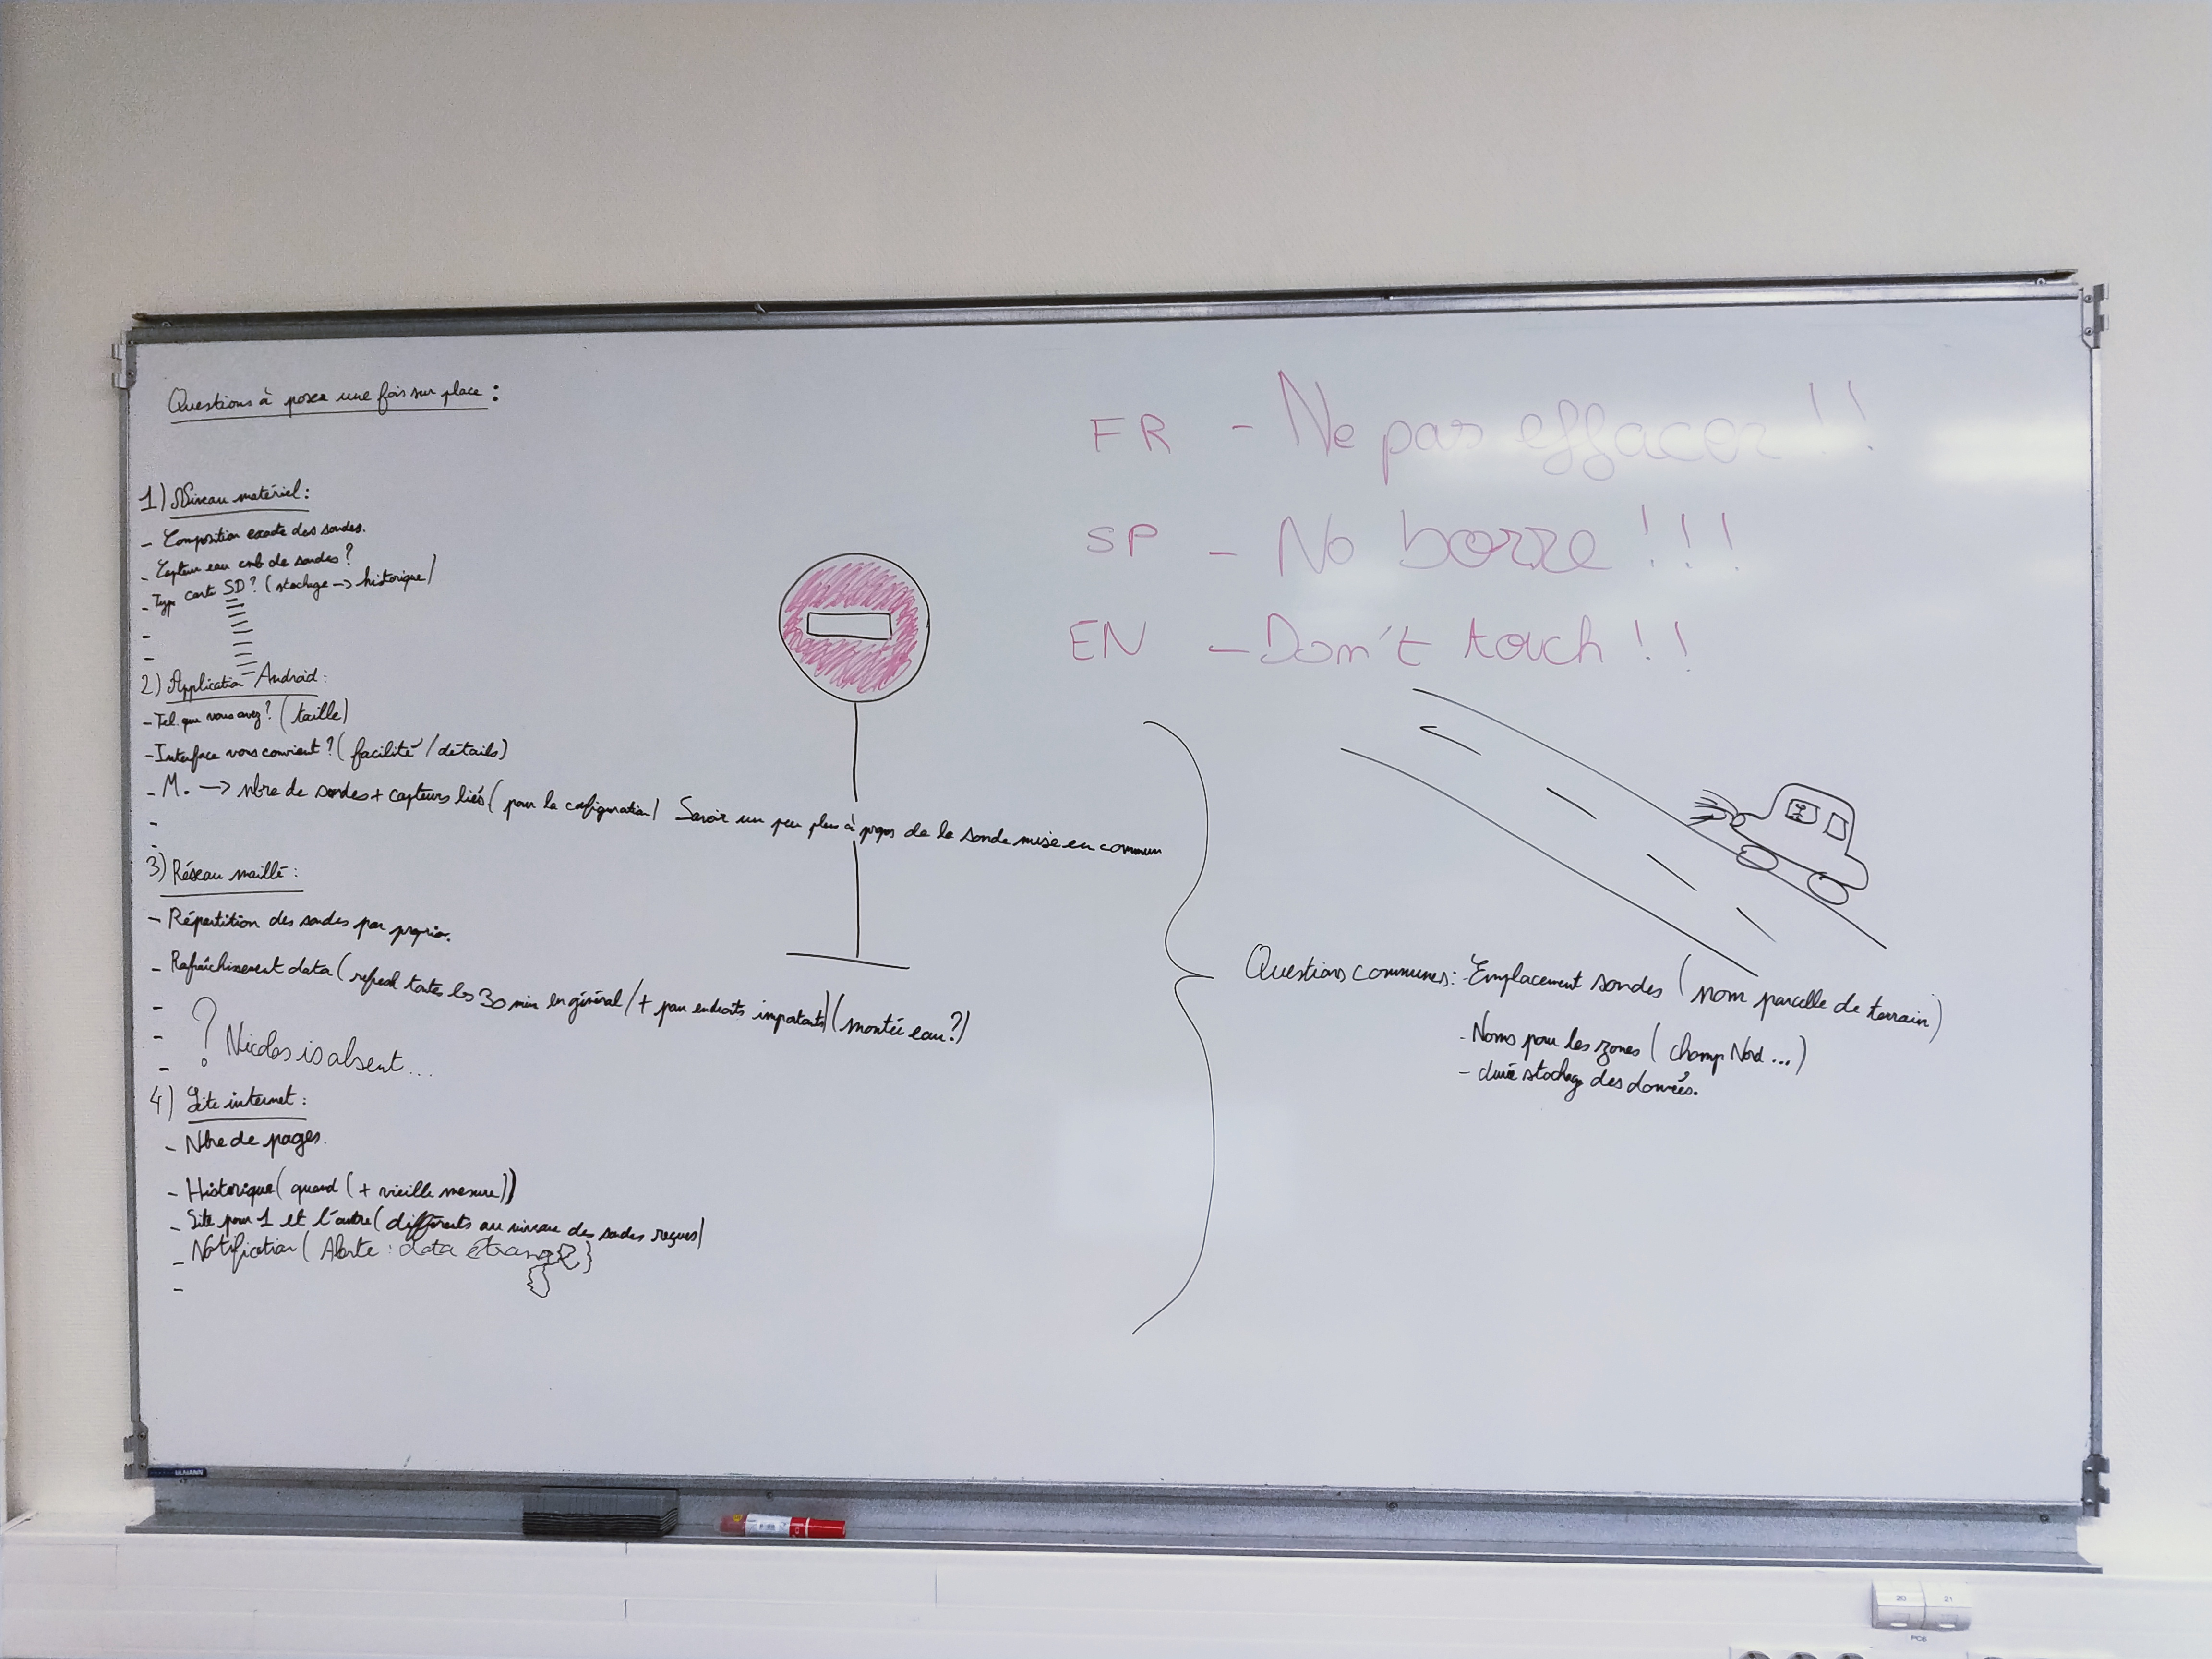 Questions à poser une fois sur place :
1) Niveau matériel :
- Composition exacte des sondes.
- Capteur eau cmb de sondes ?
- Type carte SD ? (stockage -> historique)
-
-
2) Application Android :
- Tel que vous avez ? (taille)
- Interface vous convient ? (facilité / détails)
- M. -> nbre de sondes + capteurs liés (pour la configuration) Savoir un peu plus à propos de la sonde mise en commun
-
-
3) Réseau maillé :
- Répartition des sondes par proprio.
- Rafraîchissement data (refresh toutes les 30 min en général / + par endroits importants) (montée eau ?)
-
- ? Nicolas is absent...
-
4) Site internet :
- Nbre de pages.
- Historique (quand (+ vieille mesure))
- Site pour 1 et l'autre (différents au niveau des sondes reçues)
- Notification (Alerte : data étrange)
-
FR - Ne pas effacer !!
SP - No borre !!!
EN - Don't touch !!
Questions communes : - Emplacement sondes (nom parcelle de terrain)
- Noms pour les zones (champ Nord ...)
- durée stockage des données.
ULMANN
20 21
PCE